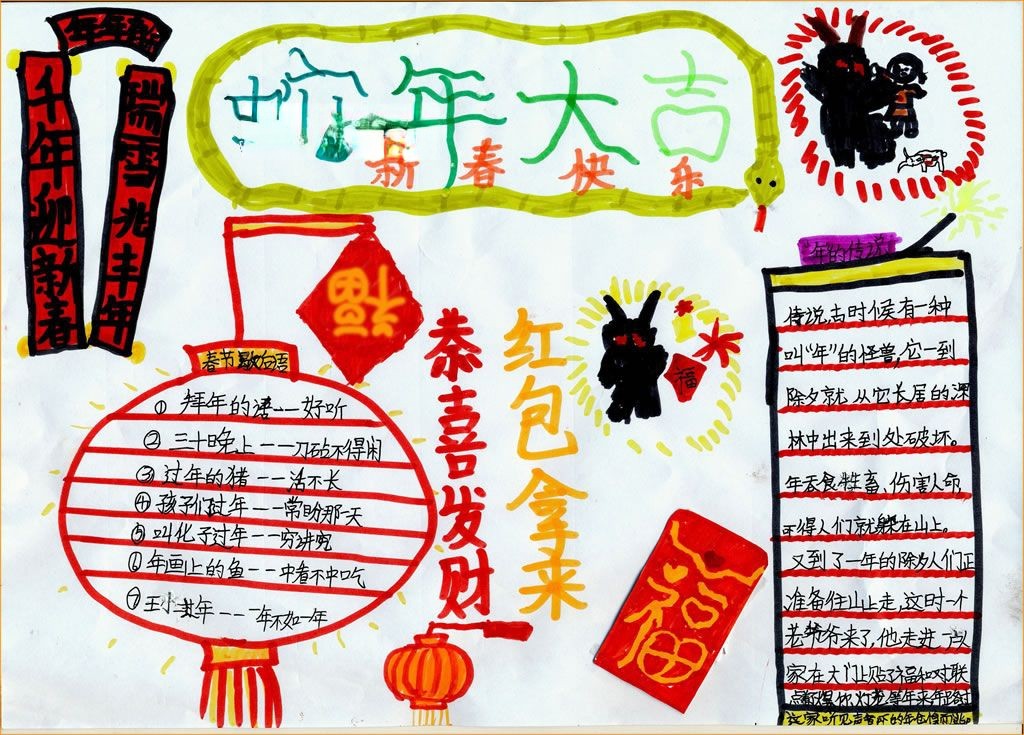 年年
千年迎新春
瑞雪兆丰年
蛇年大吉
新春快乐
福
春节歇后语
① 拜年的话——好听
② 三十晚上——刀砧不得闲
③ 过年的猪——活不长
④ 孩子们过年——常盼那天
⑤ 叫化子过年——穷讲究
⑥ 年画上的鱼——中看不中吃
⑦ 王小过年——一年不如一年
恭喜发财
红包拿来
福
福
"年"的传说
传说古时候有一种
叫"年"的怪兽,它一到
除夕就从它长居的深
林中出来到处破坏。
年吞食牲畜、伤害人命,
不得人们就躲在山上。
又到了一年的除夕人们正
准备往山上走,这时一个
老爷爷来了,他走进一户人
家在大门上贴了福和对联